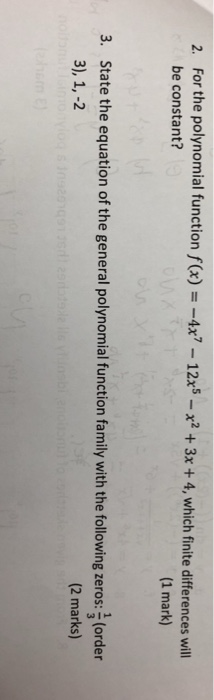 2. For the polynomial function f(x) = −4x⁷ − 12x⁵ − x² + 3x + 4, which finite differences will
be constant?
(1 mark)
3. State the equation of the general polynomial function family with the following zeros: 1/3 (order
3), 1, -2
(2 marks)